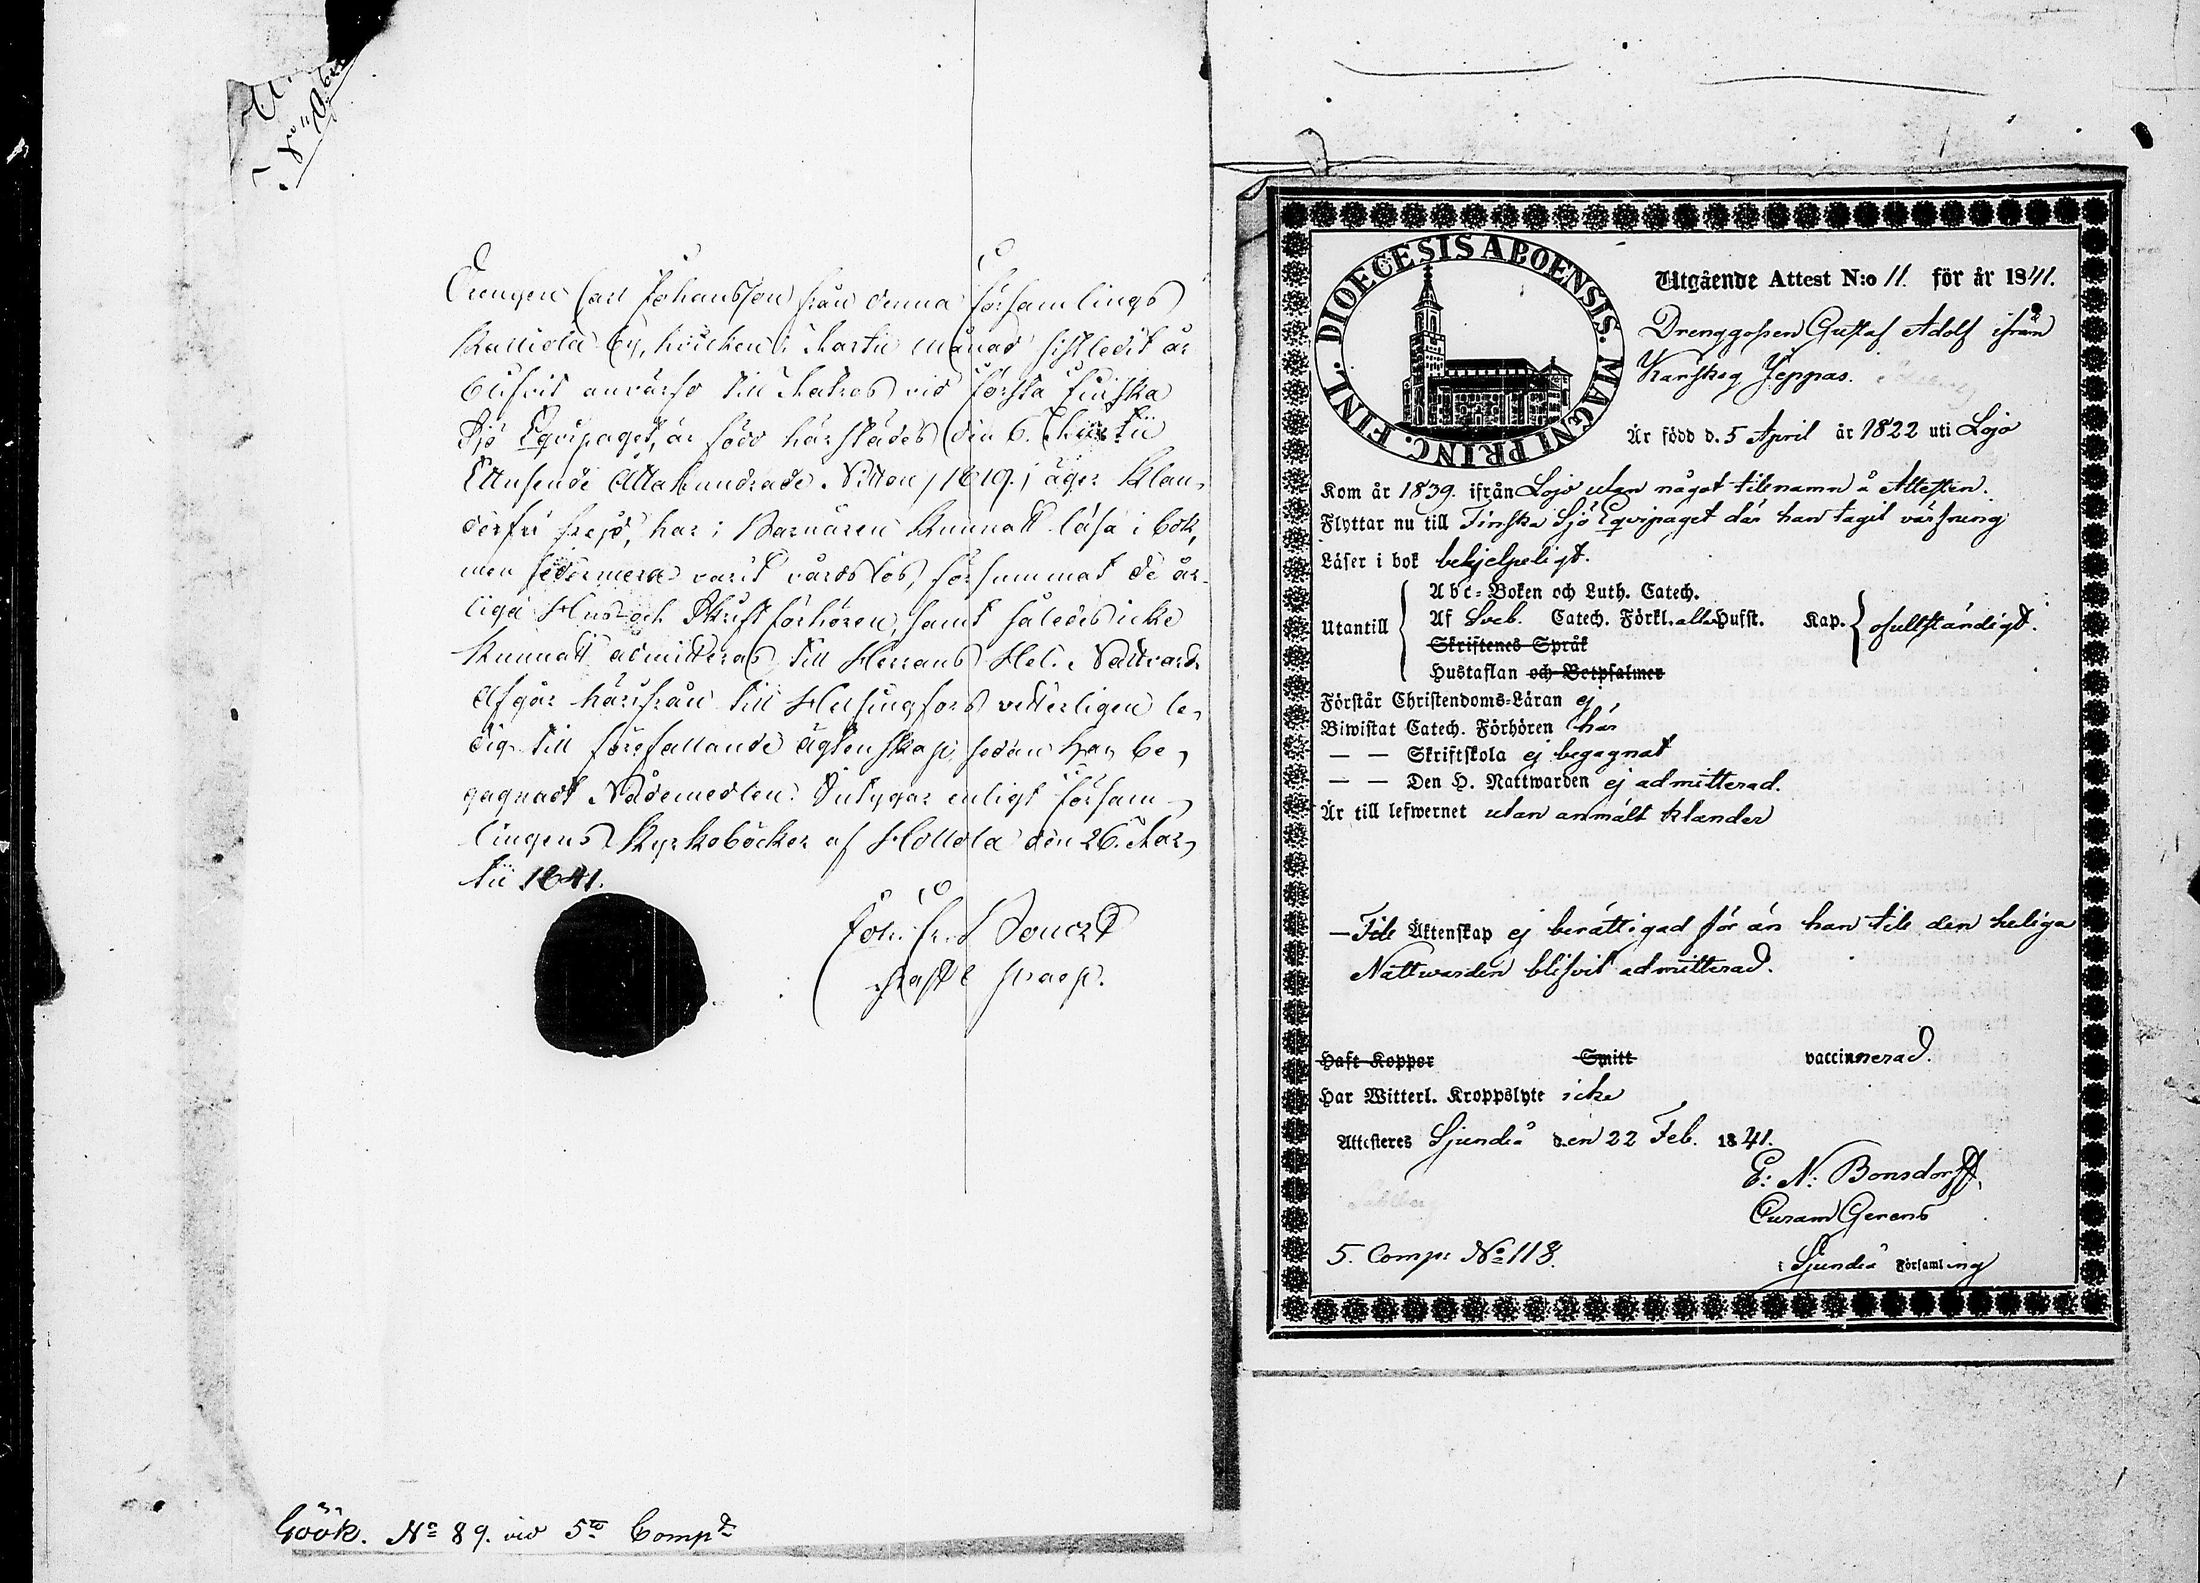 Drengen Carl Johansson från denna Församlings
Kalliola by, hvilken i Martii månad sistledit år
blifvit anvärfd till Matros vid Första Finska
Sjö Equipaget, är född härstädes den 6. Martii
Ettusende Åttahundrade Nitton /1819./ äger klan-
derfri frejd, har i Barnåren kunnatt läsa i bok,
men sedermera varit vårdslös, försummat de år-
liga Hus- och Skriftförhören, samt således icke
kunnatt admitteras till Herrans Hel. Nattvard.
Afgår härifrån till Helsingfors vitterligen le-
dig till förefallande ägtenskap, sedan han be-
gagnadt Nådemedlen. Intygar enligt Försam-
lingens Kyrkoböcker af Hollola den 26. Mar-
tii 1841.
Höök. No 89. vid 5te Compt
DIOECESIS ABOENSIS. MAGNI PRINC. FINL.
Utgående Attest N:o 11. för år 1841.
Drenggossen Gustaf Adolf ifrån
Karskog Jeppas.
Är född d. 5 April år 1822 uti Lojo
Kom år 1839. ifrån Lojo utan något tillnamn å Attesten.
Flyttar nu till Finska Sjö Equipaget där han tagit värfning
Läser i bok behjelpeligt.
Utantill
Abc-Boken och Luth. Catech.
Af Sveb. Catech. Förkl. alla Hufst. Kap. ofullständigt.
Skriftenes Språk
Hustaflan och Botpsalmer
Förstår Christendoms-Läran ej
Biwistat Catech. Förhören här
— — Skriftskola ej begagnat
— — Den H. Nattwarden ej admitterad.
Är till lefwernet utan anmält klander
— Till Äktenskap ej berättigad för än han till den heliga
Nattvarden blifvit admitterad.
Haft Koppor Smitt vaccinnerad.
Har Witterl. Kroppslyte icke
Attesteres Sjundeå den 22 Feb. 1841.
E: N: Bonsdorff,
Curam Gerens
5. Comp: No 118.
i Sjundeå Församling